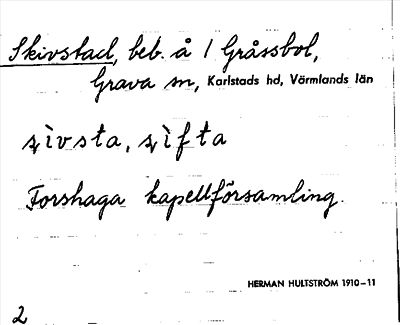 Skivstad, beb. å / Gråssbol,
Grava sn, Karlstads hd, Värmlands län
ʂìvsta, ʂìfta
Forshaga kapellförsamling.
HERMAN HULTSTRÖM 1910–11
2